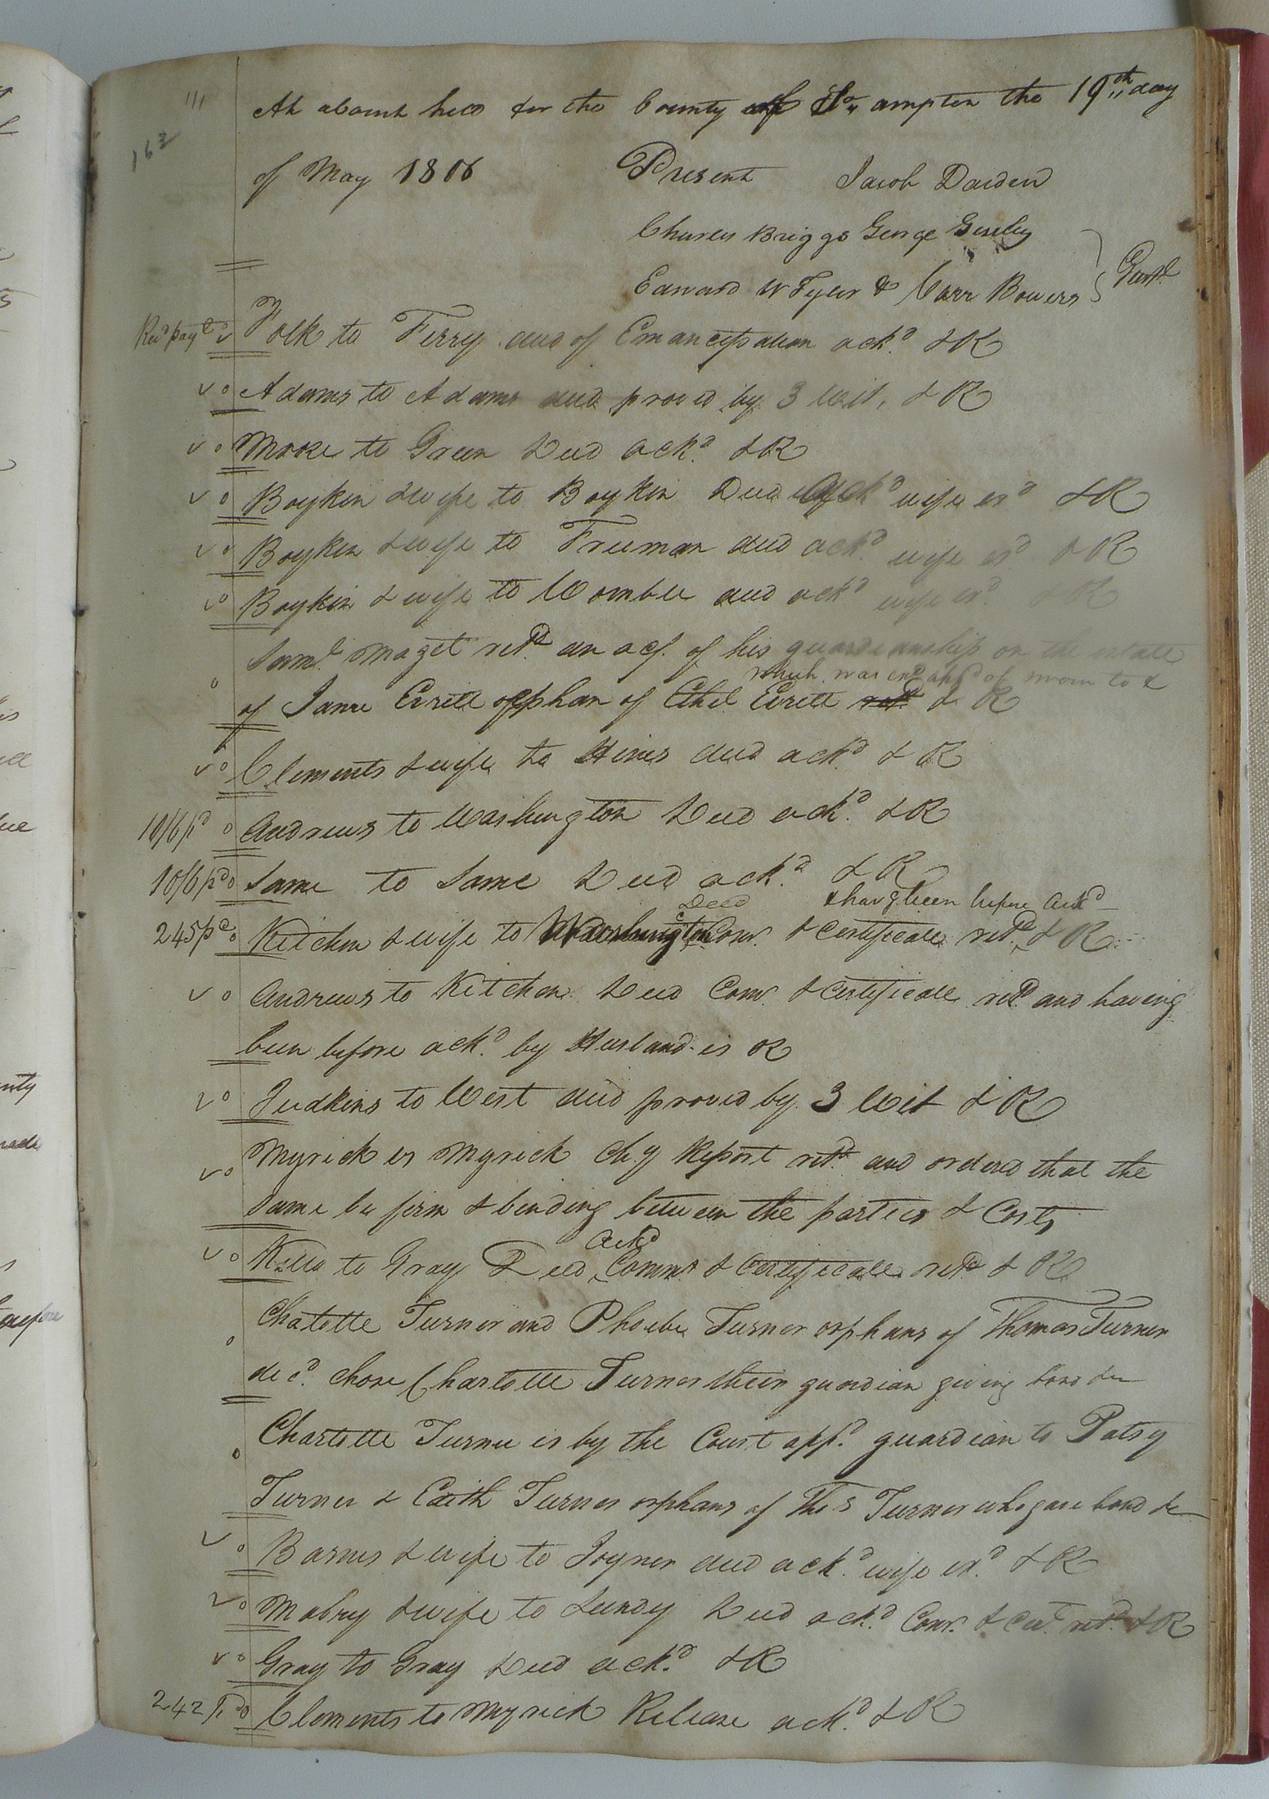 111
162
At a Court held for the County of So,, ampton the 19th,, day
of May 1806 Present Jacob Darden
Charles Briggs George Gurley
Edward W Tyler & Carr Bowers } Gent.
Recd payt Folk to Ferry deed of Emancipation ackd. & R
v o Adams to Adams deed proved by 3 wit. & R
v o Moore to Green Deed ackd. & R
v o Boykin & wife to Boykin Deed ackd wife exd & R
v o Boykin & wife to Freeman deed ackd wife exd & R
v o Boykin & wife to Womble deed ackd wife exd. R
Saml. Maget retd. an acc. of his guardianship on the estate
which was exd appd of sworn to &
o of Jame Evrett orphan of Ethel Evrett retd & R
v o Clements & wife to Hines deed ackd & R
10/6 pd o Andrews to Washington Deed ackd. & R
10/6 pd o Same to Same Deed ackd. & R
Deed & havg been before ackd
245 pd o Kitchen & wife to Washington Com. & certificate retd & R
v o Andrews to Kitchen Deed Com. & certificate retd and having
been before ackd. by Husband is R
v o Judkins to West deed proved by 3 Wit & R
v o Myrick vs Myrick Chy Report retd. and ordered that the
same be firm & binding between the parties & Costs
ackd
v o Kello to Gray Deed Comms & certificate retd & R
o Charlotte Turner and Phoebe Turner orphans of Thomas Turner
decd. chose Charlotte Turner their guardian giving bond &c
o Charlotte Turner is by the Court appd. guardian to Patsy
Turner & Edith Turner orphans of Thos Turner who gave bond &c
v o Barnes & wife to Joyner deed ackd. wife exd. & R
v o Mabry & wife to Lundy Deed ackd. Com. & Cert retd. & R
v o Gray to Gray Deed ackd. & R
242 pd o Clements to Myrick Release ackd. & R